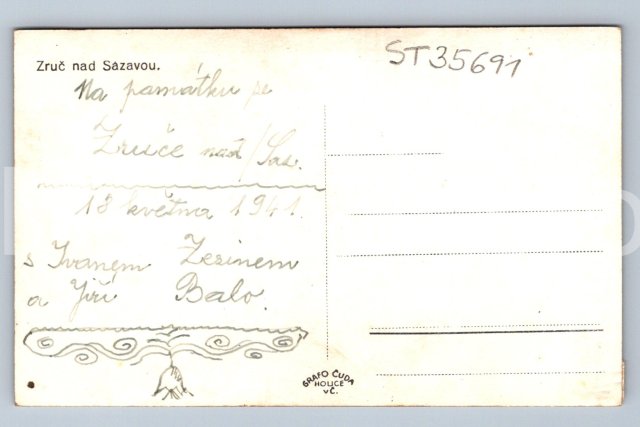 Zruč nad Sázavou.
ST35691
Na památku ze
Zruče nad/Sáz.
13 května 1941.
s Ivanem Zesinem
a Jiří Balo.
GRAFO ČUDA
HOLICE
v Č.